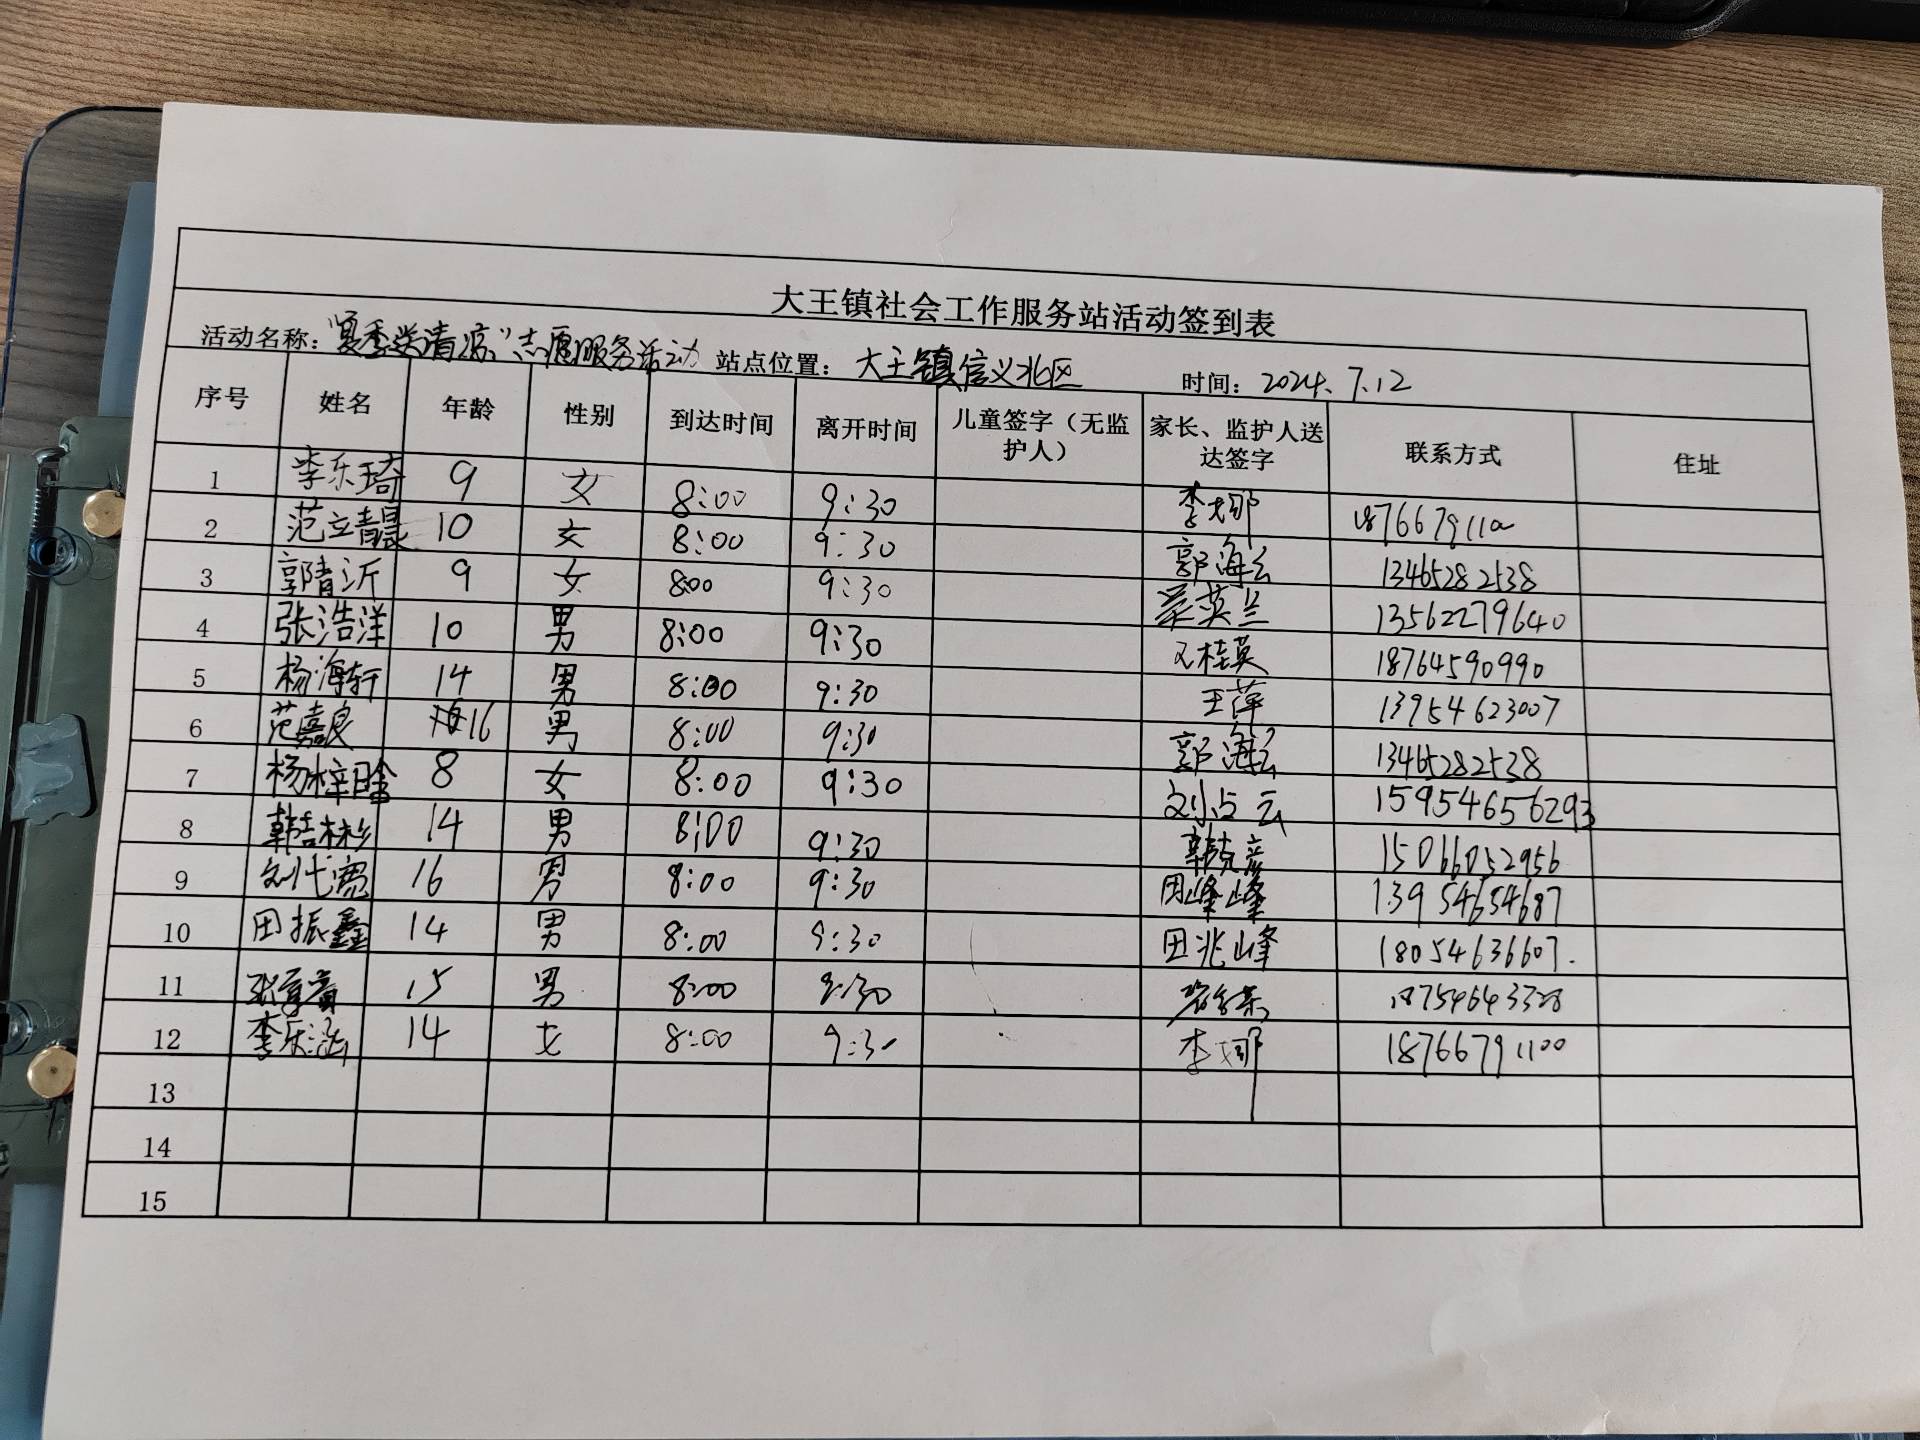 大王镇社会工作服务站活动签到表
活动名称：“夏季送清凉”志愿服务活动 站点位置：大王镇信义北区 时间：2024.7.12
序号 姓名 年龄 性别 到达时间 离开时间 儿童签字（无监护人） 家长、监护人送达签字 联系方式 住址
1 李乐琦 9 女 8:00 9:30 李娜 18766791100
2 范立晴晨 10 女 8:00 9:30 郭海云 13465282538
3 郭青沂 9 女 8:00 9:30 英兰 13562279640
4 张浩洋 10 男 8:00 9:30 桂英 18764590990
5 杨海轩 14 男 8:00 9:30 王萍 13954623007
6 范嘉良 16 男 8:00 9:30 郭海云 13465282538
7 杨梓晗 8 女 8:00 9:30 刘占云 15954656293
8 韩 14 男 8:00 9:30 韩克彦 15066052956
9 刘代宽 16 男 8:00 9:30 田峰峰 13954654687
10 田振鑫 14 男 8:00 9:30 田兆峰 18054636607.
11 张 15 男 8:00 9:30 18754643328
12 李乐涵 14 女 8:00 9:30 李娜 18766791100
13
14
15